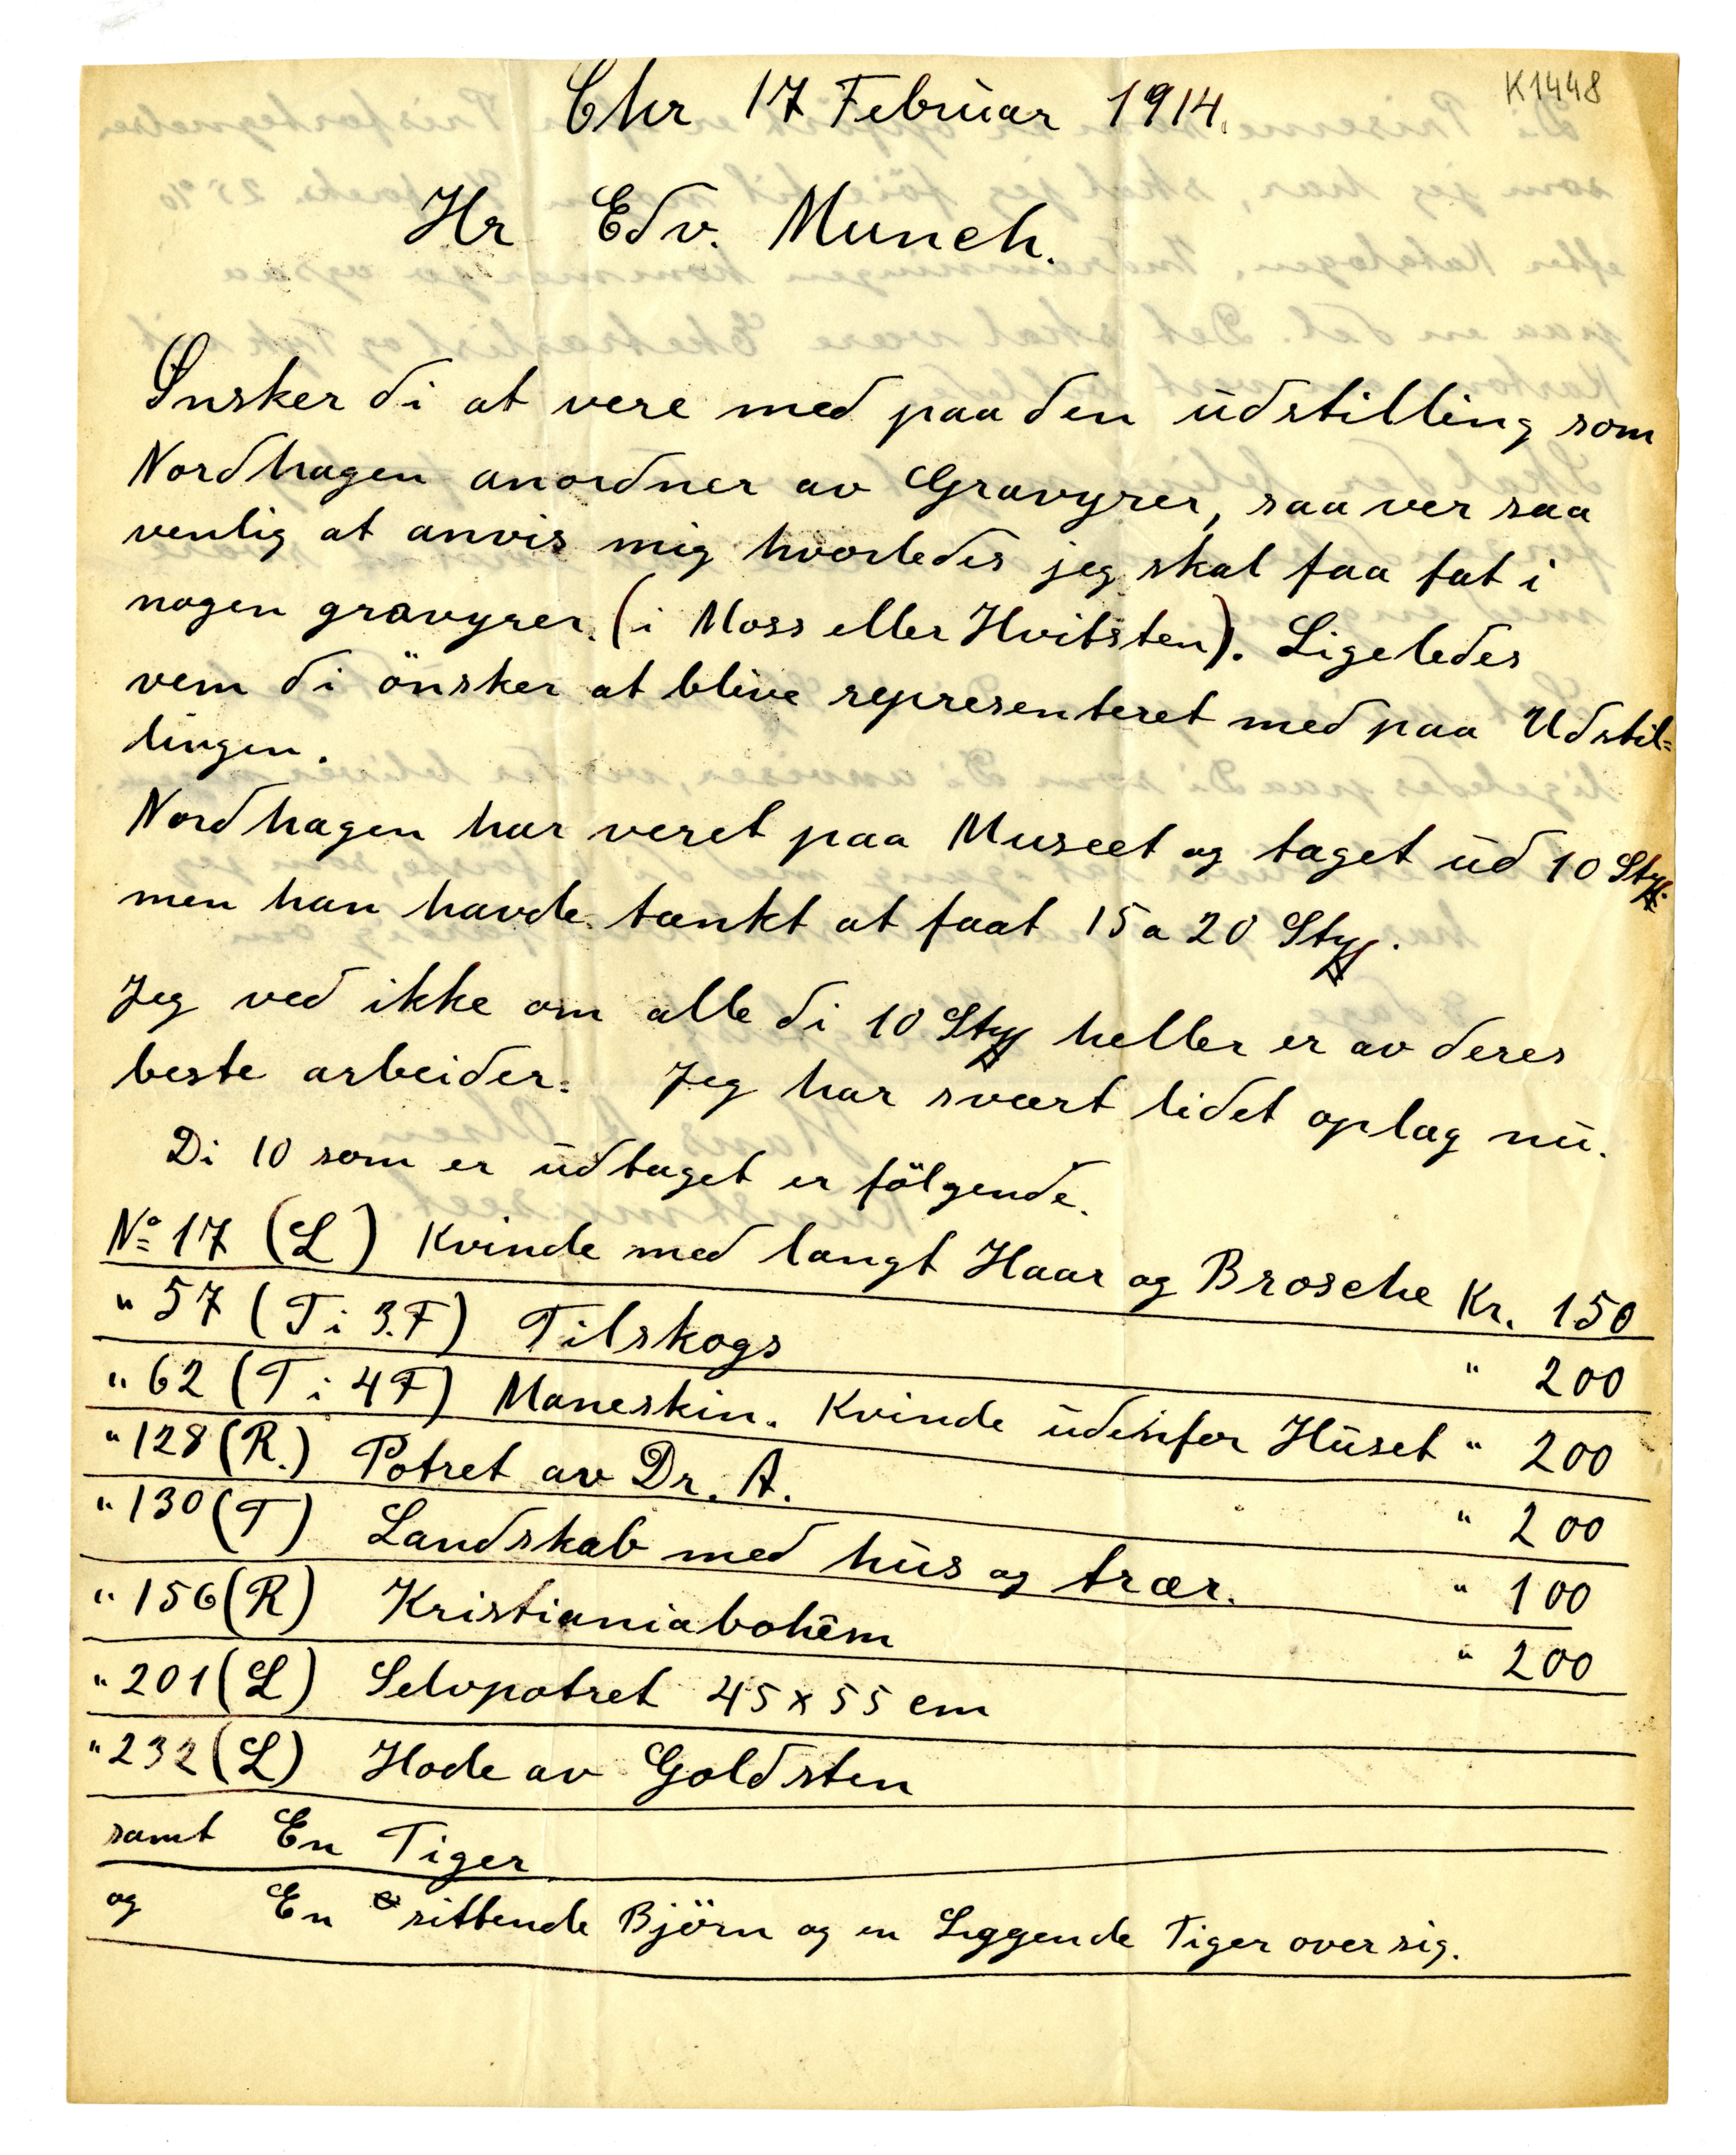 K1448
Chr 17 Februar 1914.
Hr Edv. Munch.
Ønsker di at vere med paa den udstilling som
Nordhagen anordner av Gravyrer, saa ver saa
venlig at anvis mig hvorledes jeg skal faa fat i
nogen gravyrer. (i Moss eller Hvitsten). Ligeledes
vem di önsker at blive representeret med paa Udstil=
lingen.
Nordhagen har veret paa Museet og taget ud 10 Sty.
men han havde tænkt at faat 15 a 20 Sty.
Jeg ved ikke om alle di 10 Sty heller er av deres
beste arbeider. Jeg har svært lidet oplag nu.
Di 10 som er udtaget er fölgende.
No 17 (L) Kvinde med langt Haar og Brosche Kr. 150
" 57 (T i 3.F) Tilskogs " 200
" 62 (T i 4F) Maneskin. Kvinde udenfor Huset " 200
" 128 (R.) Potret av Dr. A. " 200
" 130 (T) Landskab med hus og trær. " 100
" 156 (R) Kristianiabohêm " 200
" 201 (L) Selvpotret 45 x 55 cm
" 232 (L) Hode av Goldsten
samt En Tiger
og En sittende Björn og en Liggende Tiger over sig.